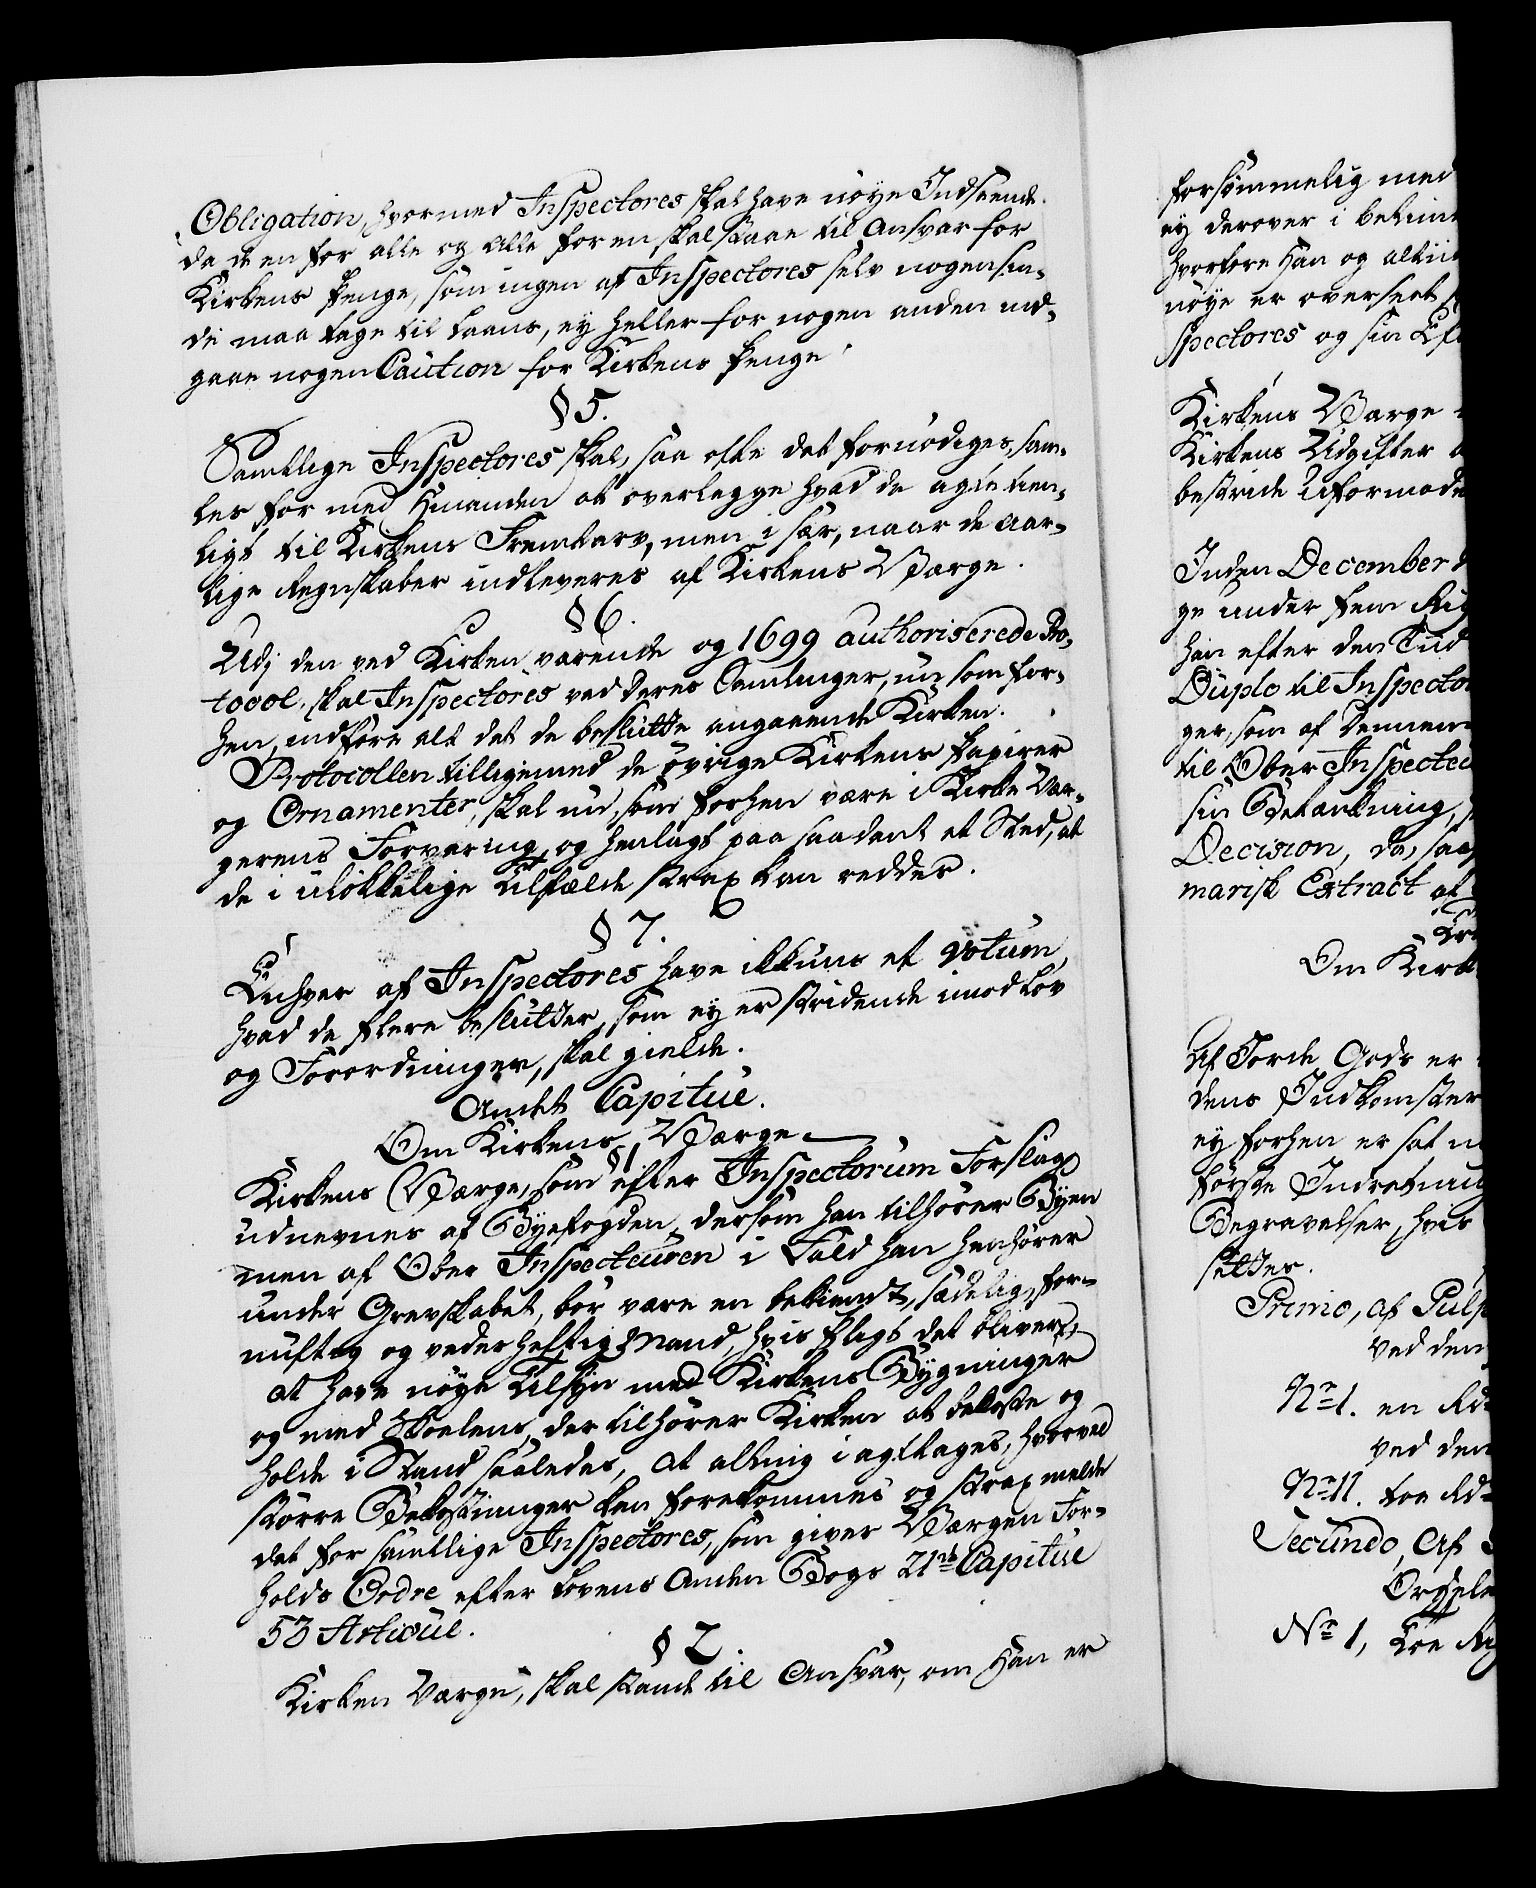 Obligation, hvormed Inspectores skal have nøye Indseende.
da de en for alle og alle for en, skal staae til Ansvar for
Kirkens Penge, som ingen af Inspectores selv nogensin-
de maa tage til Laans, ey heller for nogen anden ind-
gaae nogen Caution for Kirkens Penge
§ 5.
Samtlige Inspectores skal, saa ofte det fornødiges, sam-
les for med hinanden at overlegge hvad de agte tien-
ligt til Kirkens Fremtarv, men i sær, naar de Aar-
lige Regnskaber indleveres af Kirkens Værge.
§ 6.
Udj den ved Kirken værende og 1699 authoriserede Pro-
tocol, skal Inspectores ved deres Samlinger, nu som for-
hen, indføre alt det de beslutte angaaende Kirken.
Protocollen tilligemed de øvrige Kirkens Papirer
og Ornamenter, skal nu, som forhen være i Kirke Vær-
gerens Forvaring, og henlagt paa saadant et Sted, at
de i ulykkelige Tilfælde strax kan reddes.
§ 7.
Enhver af Inspectores have ikkuns et Votum,
hvad de flere beslutter, som ey er stridende imod Lov
og Forordninger, skal gielde.
Andet Capitul.
Om Kirkens Værge.
§ 1
Kirkens Værge, som efter Inspectorum Forslag
udnevnes af Byefogden, dersom han tilhører Byen
men af Ober Inspecteuren i Fald han henhører
under Grevskabet, bør være en bekiendt, sædelig, for-
nuftig og vederheftig Mand, hvis Pligt det bliver,
at have nøye Tilsyn med Kirkens Bygninger
og med Skoelens, der tilhører Kirken at bekoste og
holde i Stand saaledes, at alting i agttages, hvorved
større Bekostninger kan forekommes og strax melde
det for samtlige Inspectores, som giver Værgen For-
holds Ordre efter Lovens Anden Bogs 21de Capitul
53 Articul.
§ 2.
Kirken Værge, skal staae til Ansvar, om han er
forsømmelig med
ey derover i
hvorfore han og
nøye er overseet
spectores og sin
Kirkens Værge
Kirkens Udgifter
bestride
Inden December
ge under fem
han efter den Tiid
Duplo til Inspector
ger, som af
til Ober Inspecteu
sin Betænkning,
Decision, da, saa
marisk Extract af
Om Kirk
Af Jorde Gods er
dens Indkomster
ey forhen er sat
første Indretning
Begravelser, hvis
settes.
Primo, af Pulp
ved den
No 1. en Rd
ved den
No II. toe Rd
Secundo, Af
Orgel
No 1, toe